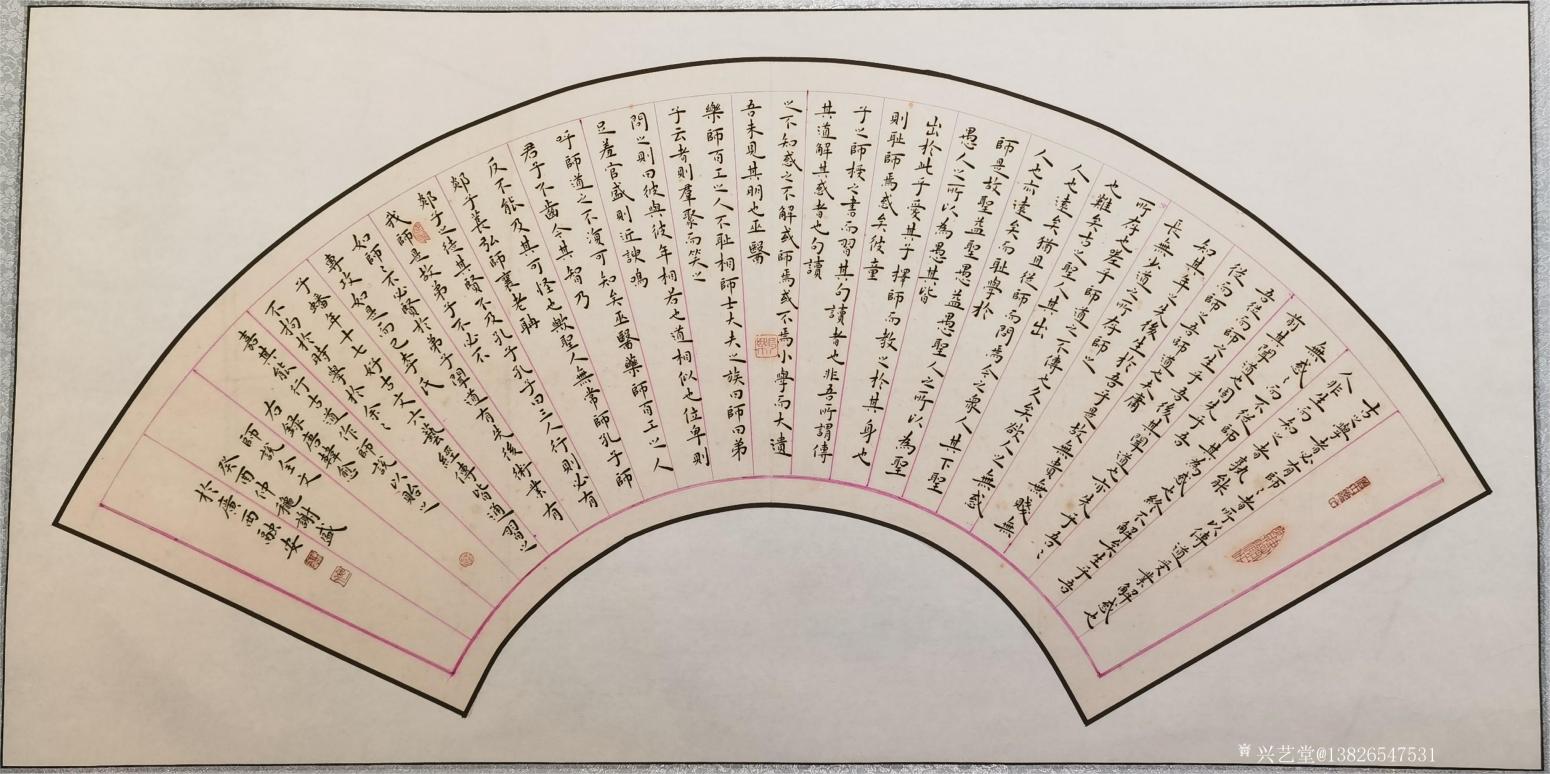 古之學者必有師〻者所以傳道受業解惑也
人非生而知之者孰能
無惑〻而不從師其為惑也終不解矣生乎吾
前其聞道也固先乎吾
吾從而師之生乎吾後其聞道也亦先乎吾〻
從而師之吾師道也夫庸
知其年之先後生於吾乎是故無貴無賤無
長無少道之所存師之
所存也嗟乎師道之不傳也久矣欲人之無惑
也難矣古之聖人其出
人也遠矣猶且從師而問焉今之眾人其下聖
人也亦遠矣而恥學於
師是故聖益聖愚益愚聖人之所以為聖
愚人之所以為愚其皆
出於此乎愛其子擇師而教之於其身也
則恥師焉惑矣彼童
子之師授之書而習其句讀者也非吾所謂傳
其道解其惑者也句讀
之不知惑之不解或師焉或不焉小學而大遺
吾未見其明也巫醫
樂師百工之人不恥相師士大夫之族曰師曰弟
子云者則羣聚而笑之
問之則曰彼與彼年相若也道相似也位卑則
足羞官盛則近諛嗚
呼師道之不復可知矣巫醫藥師百工之人
君子不齒今其智乃
反不能及其可怪也歟聖人無常師孔子師
郯子萇弘師襄老聃
郯子之徒其賢不及孔子孔子曰三人行則必有
我師是故弟子不必不
如師〻不必賢於弟子聞道有先後術業有
專攻如是而已李氏
子蟠年十七好古文六藝經傳皆通習之
不拘於時學於余〻
嘉其能行古道作師說以貽之
右錄唐韓愈
師說全文
癸酉仲穐謝盛
於廣西融安
兴艺堂@13826547531